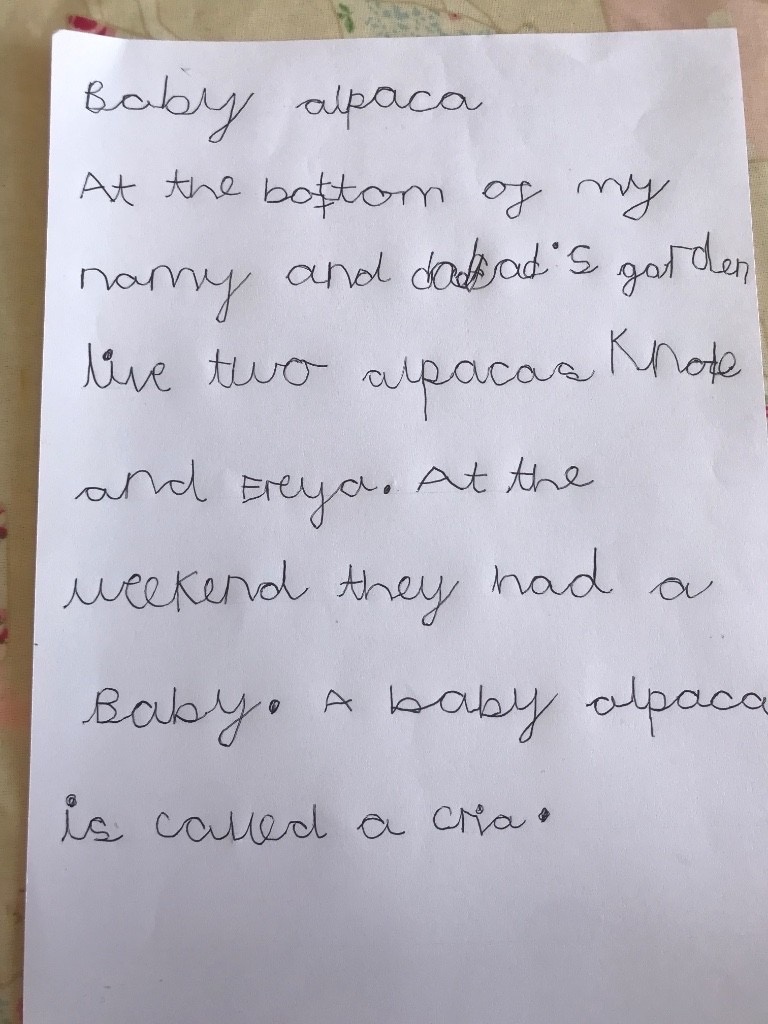 Baby alpaca
At the bottom of my
nanny and dad's garden
live two alpacas Knote
and Ereya. At the
weekend they had a
Baby. A baby alpaca
is called a cria.